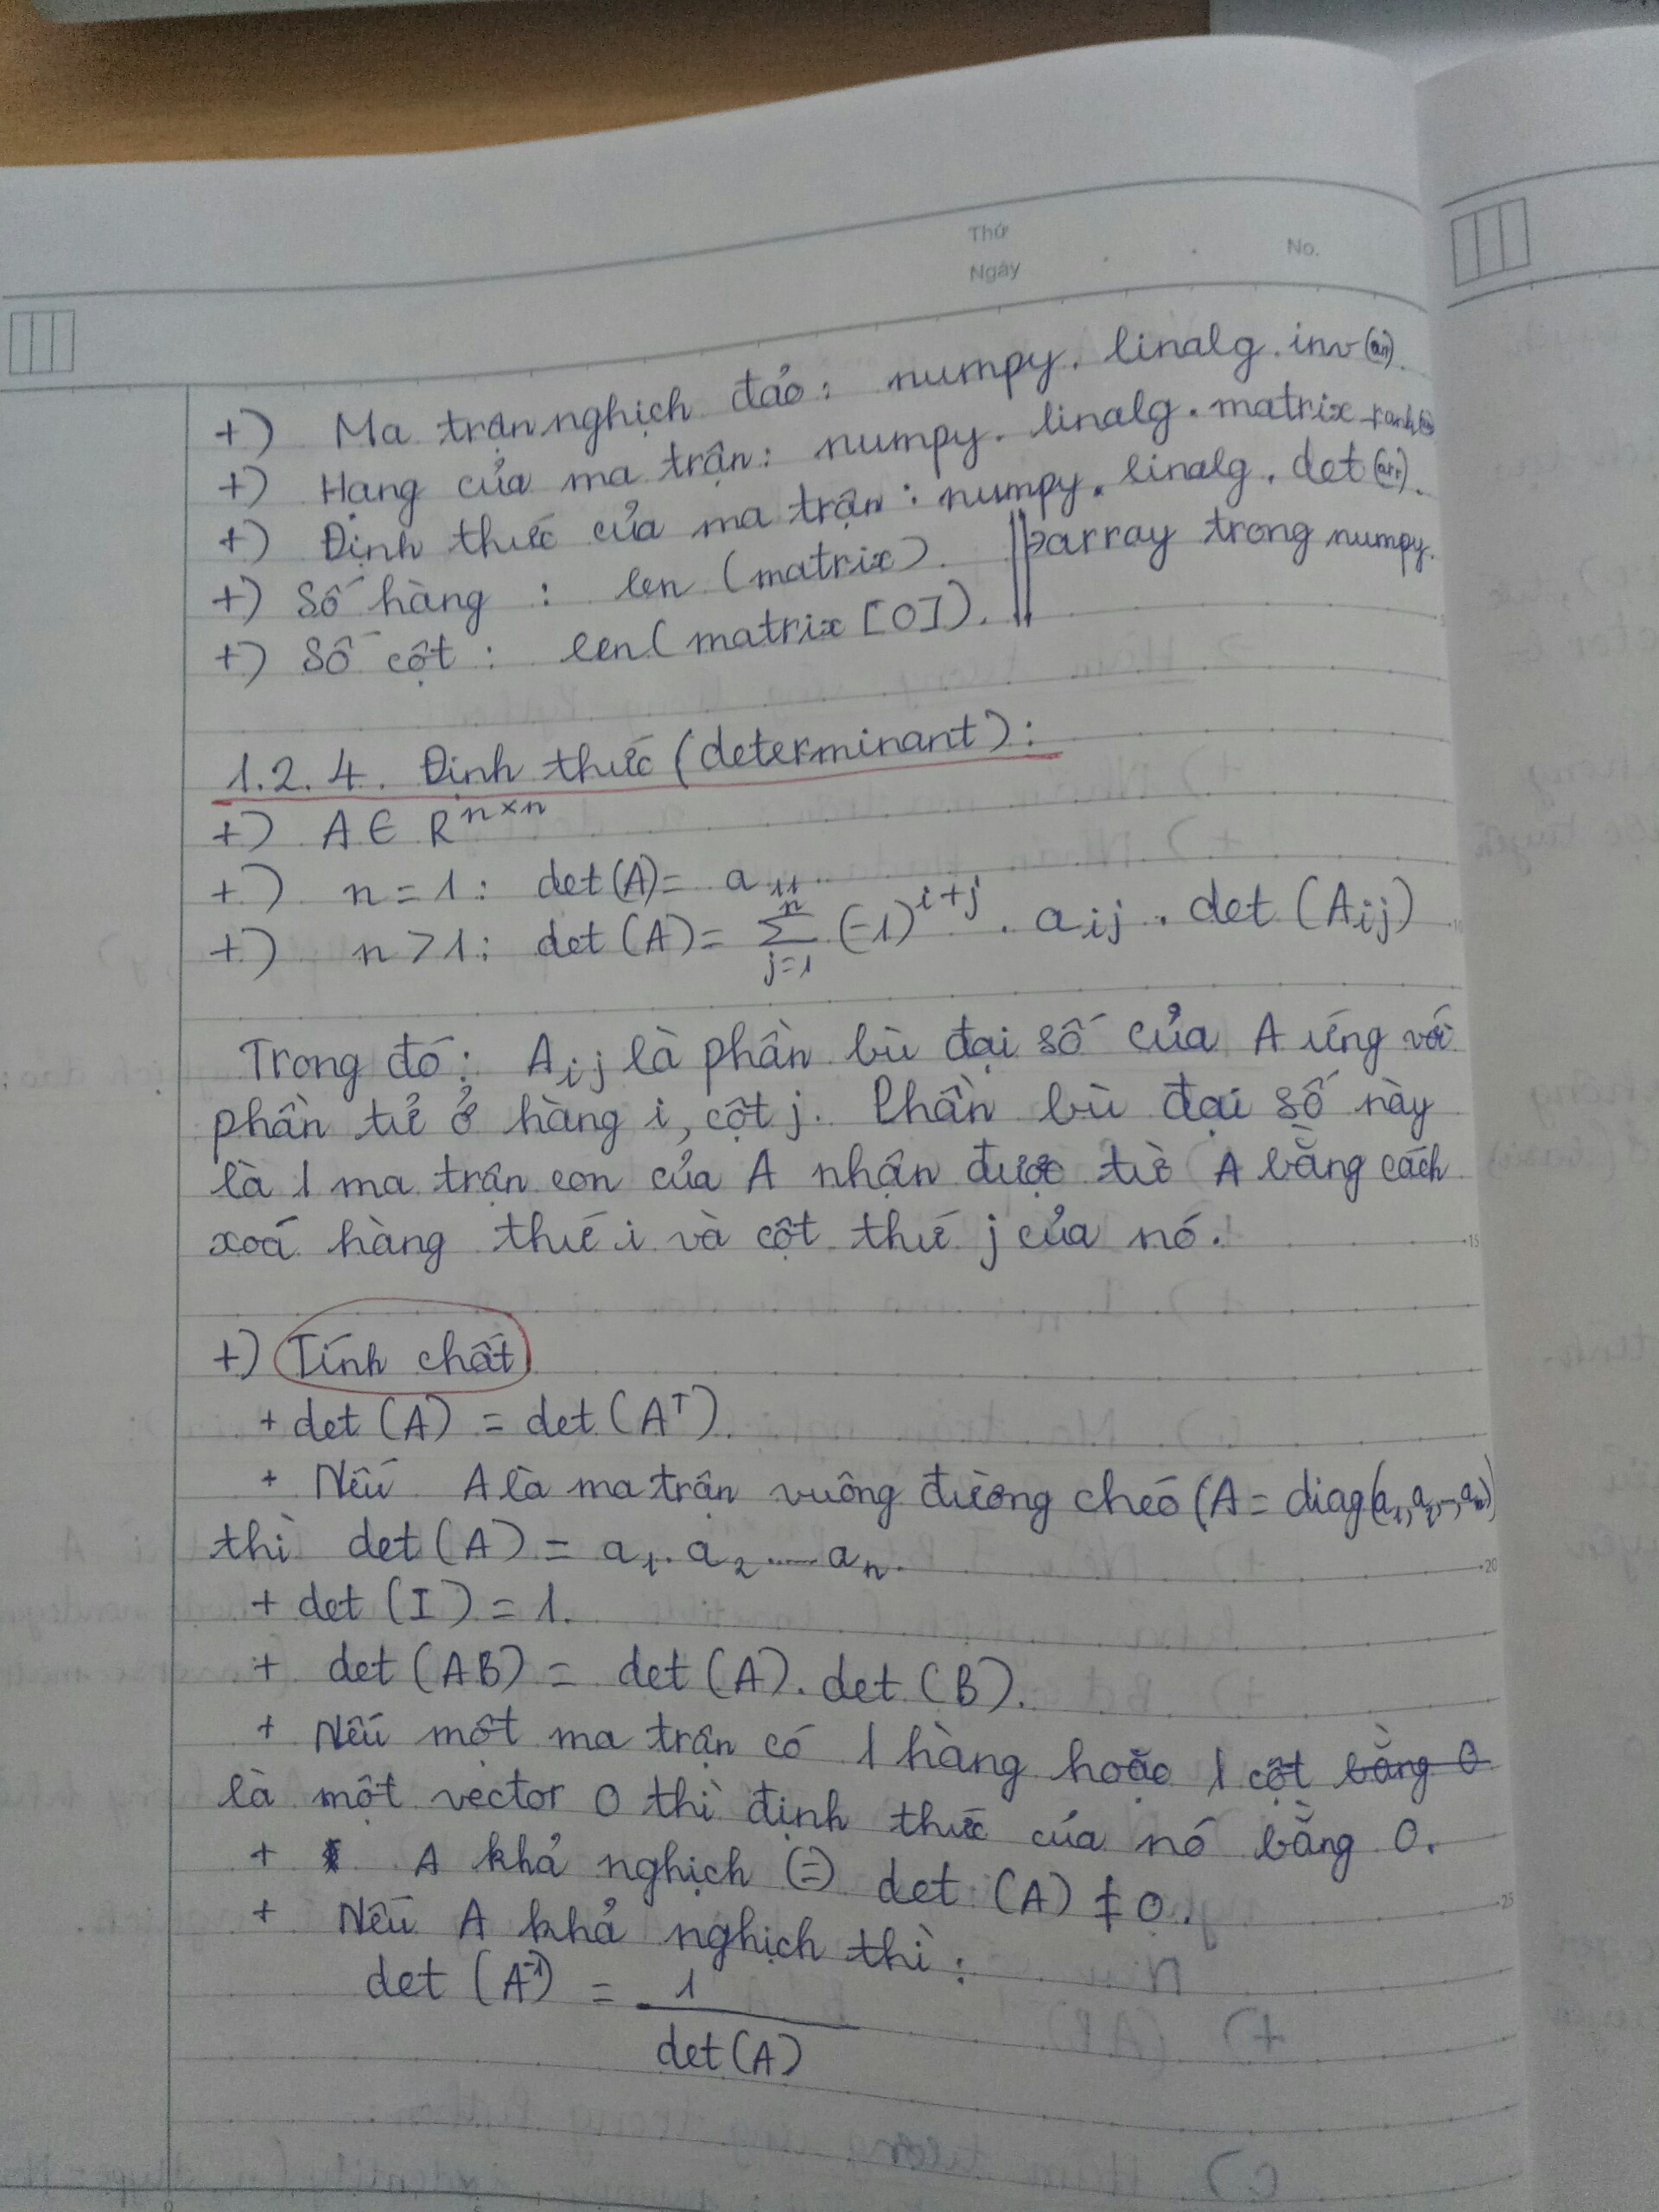 Thứ
Ngày
No.
+) Ma trận nghịch đảo: numpy.linalg.inv(arr).
+) Hạng của ma trận: numpy.linalg.matrix_rank
+) Định thức của ma trận: numpy.linalg.det(arr).
+) Số hàng : len (matrix). array trong numpy.
+) Số cột : len(matrix[0]).
1.2.4. Định thức (determinant):
+) A ∈ R^{n×n}
+) n = 1: det(A) = a_{11}
+) n > 1: det(A) = \sum_{j=1}^{n} (-1)^{i+j} . a_{ij} . det (A_{ij})
Trong đó: A_{ij} là phần bù đại số của A ứng với
phần tử ở hàng i, cột j. Phần bù đại số này
là 1 ma trận con của A nhận được từ A bằng cách
xoá hàng thứ i và cột thứ j của nó.
+) Tính chất
+ det (A) = det (A^T).
+ Nếu A là ma trận vuông đường chéo (A = diag(a_1, a_2, ..., a_n)
thì det (A) = a_1. a_2 ..... a_n.
+ det (I) = 1.
+ det (AB) = det (A). det (B).
+ Nếu một ma trận có 1 hàng hoặc 1 cột bằng 0
là một vector 0 thì định thức của nó bằng 0.
+ A khả nghịch (=) det (A) ≠ 0.
+ Nếu A khả nghịch thì:
det (A^{-1}) = 1
det (A)
15
20
25